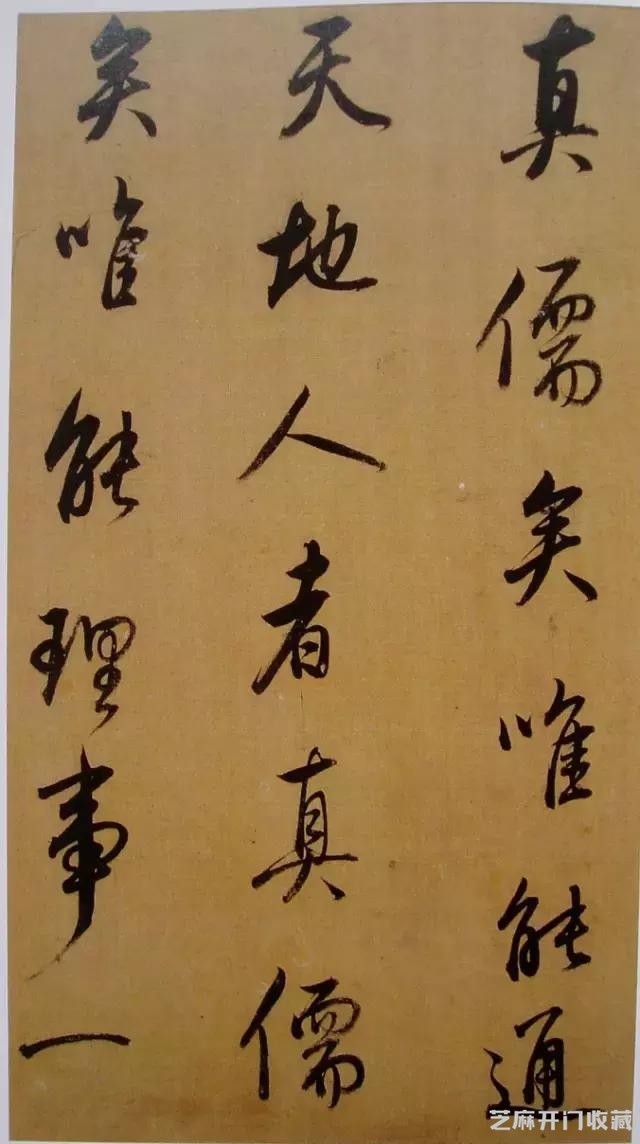 真儒矣唯能通
天地人者真儒
矣唯能理事一
芝麻开门收藏